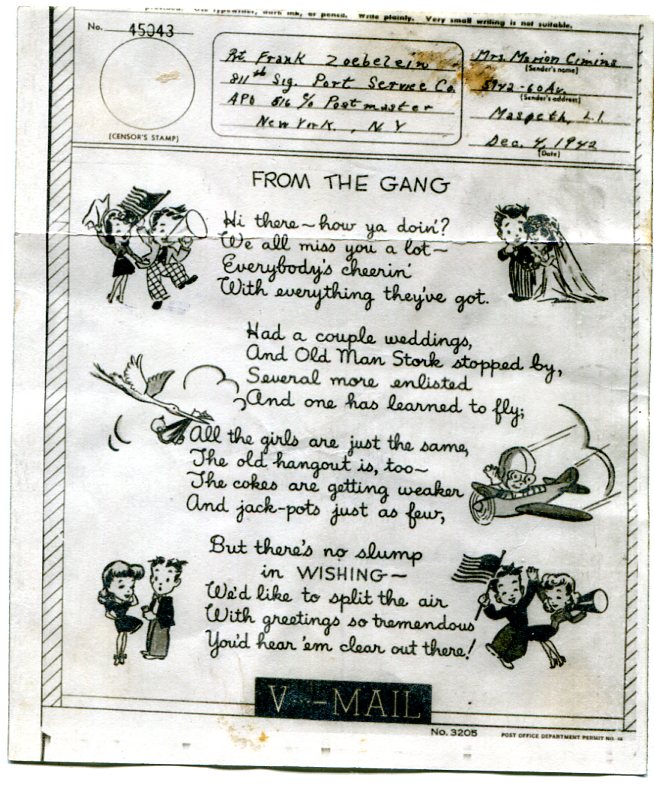 provided. Use typewriter, dark ink, or pencil. Write plainly. Very small writing is not suitable.
No. 45043
(CENSOR'S STAMP)
Pvt Frank Zoebelein
811th Sig. Port Service Co.
APO 516 c/o Postmaster
New York, N Y
Mrs. Marion Cimino
(Sender's name)
5942-60 Av.
(Sender's address)
Maspeth, L I
Dec. 4, 1942
(Date)
FROM THE GANG
Hi there~how ya doin'?
We all miss you a lot~
Everybody's cheerin'
With everything they've got.
Had a couple weddings,
And Old Man Stork stopped by,
Several more enlisted
And one has learned to fly;
All the girls are just the same,
The old hangout is, too~
The cokes are getting weaker
And jack-pots just as few,
But there's no slump
in WISHING~
We'd like to split the air
With greetings so tremendous
You'd hear 'em clear out there!
V--MAIL
No. 3205
POST OFFICE DEPARTMENT PERMIT NO.